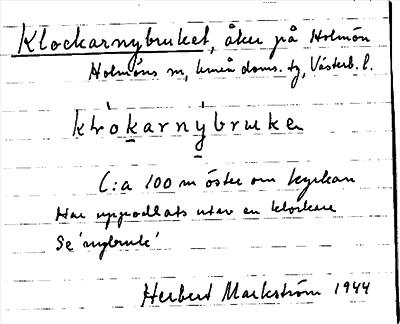 Klockarnybruket, åker på Holmön
Holmöns sn, Umeå doms. tg, Västerb. l.
klòkarnýbruke
C:a 100 m öster om kyrkan
Har uppodlats utav en klockare
Se 'nybruk'
Herbert Markström 1944